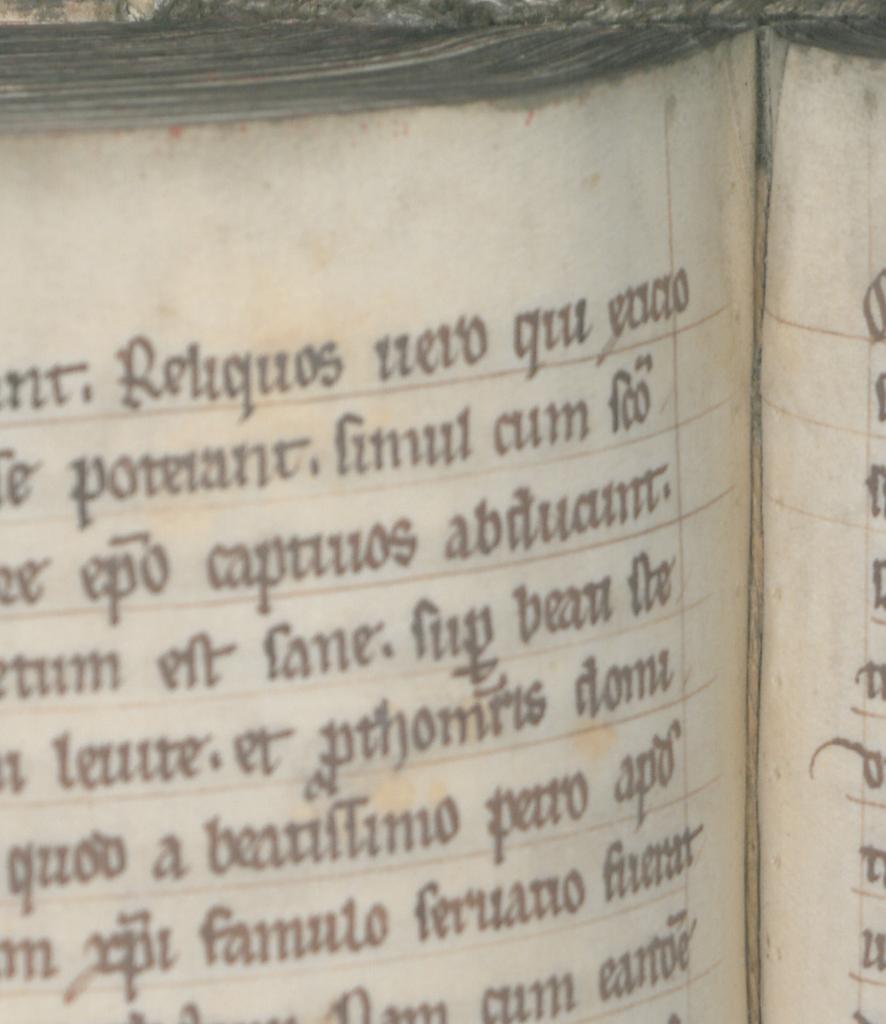 ant. Reliquos uero qui euasio
se poterant. simul cum sc̄o
re ep̄o captiuos abducunt.
etum est sane. sup̱ beati ste
leuite. et p̱thom̄r̄is domi
quod a beatissimo petro apd̕
m xp̄i famulo seruatio fuerat
Nam cum eandē